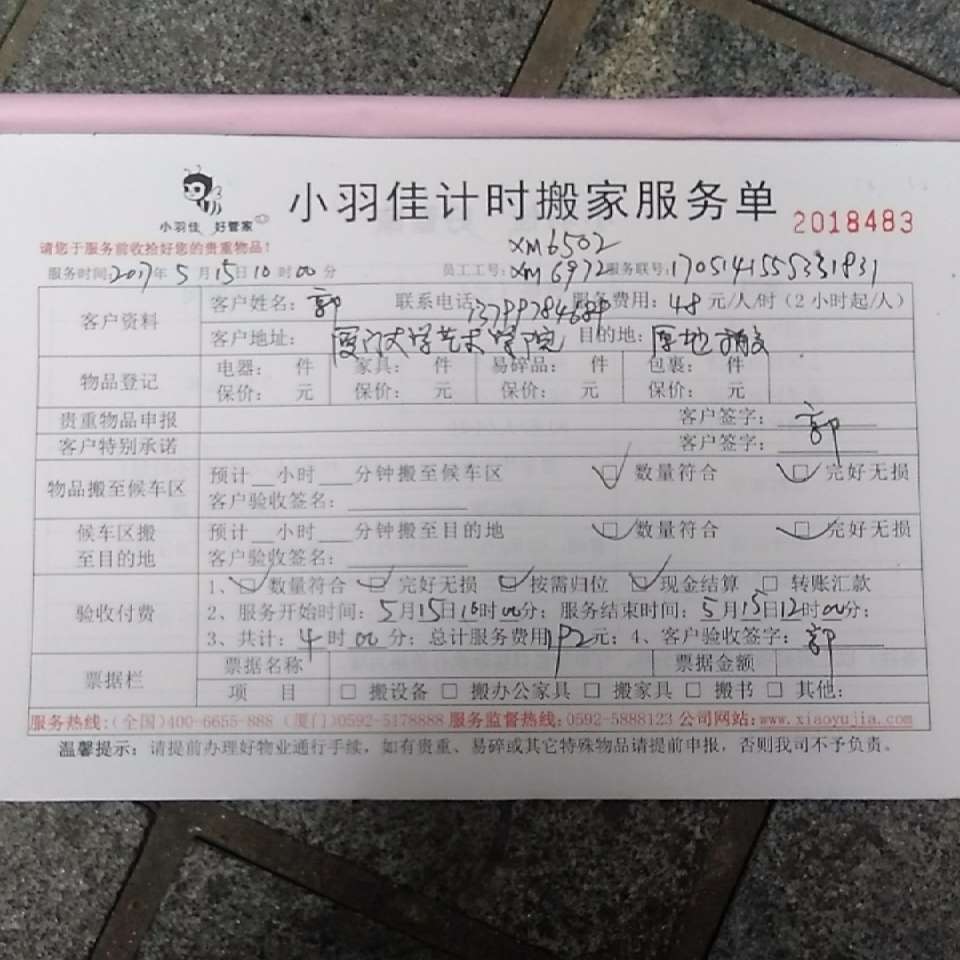 小羽佳 好管家
小羽佳计时搬家服务单 2018483
请您于服务前收拾好您的贵重物品!
XM6502
服务时间2017年5月15日10时00分 员工工号:XM6972服务联号:1705141555331831
客户资料
客户姓名:郭 联系电话: 服务费用:48元/人/时(2小时起/人)
客户地址:厦门大学艺术学院 目的地:原地
物品登记
电器: 件 家具: 件 易碎品: 件 包裹: 件
保价: 元 保价: 元 保价: 元 保价: 元
贵重物品申报 客户签字:郭
客户特别承诺 客户签字:
物品搬至候车区
预计__小时___分钟搬至候车区 数量符合 完好无损
客户验收签名:
候车区搬至目的地
预计__小时___分钟搬至目的地 数量符合 完好无损
客户验收签名:
验收付费
1、数量符合 完好无损 按需归位 现金结算 转账汇款
2、服务开始时间:5月15日10时00分;服务结束时间:5月15日12时00分;
3、共计:4时00分;总计服务费用192元;4、客户验收签字:郭
票据栏
票据名称 票据金额
项 目 搬设备 搬办公家具 搬家具 搬书 其他:
服务热线:(全国)400-6655-888 (厦门)0592-5178888 服务监督热线:0592-5888123 公司网站:www.xiaoyujia.com
温馨提示:请提前办理好物业通行手续,如有贵重、易碎或其它特殊物品请提前申报,否则我司不予负责。